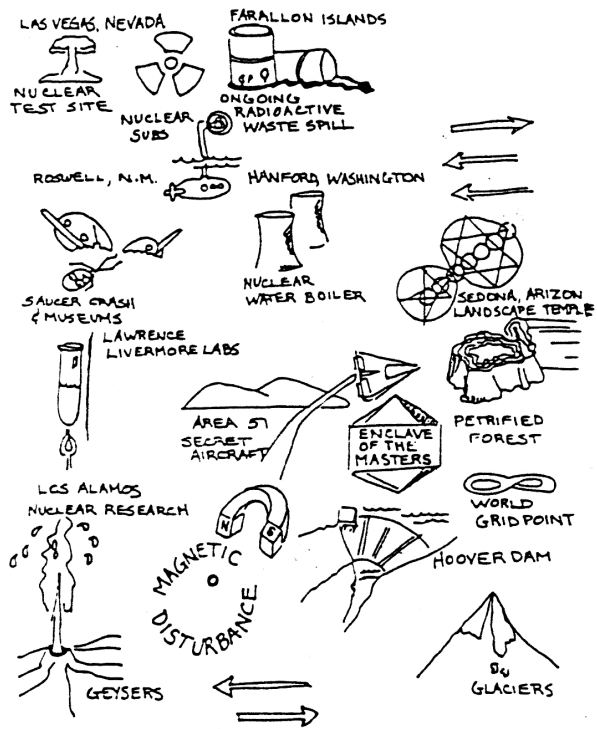 LAS VEGAS, NEVADA
NUCLEAR
TEST SITE
FARALLON ISLANDS
ONGOING
RADIOACTIVE
WASTE SPILL
NUCLEAR
SUBS
ROSWELL, N.M.
HANFORD, WASHINGTON
SAUCER CRASH
& MUSEUMS
NUCLEAR
WATER BOILER
SEDONA, ARIZON
LANDSCAPE TEMPLE
LAWRENCE
LIVERMORE LABS
AREA 51
SECRET
AIRCRAFT
ENCLAVE
OF THE
MASTERS
PETRIFIED
FOREST
LOS ALAMOS
NUCLEAR RESEARCH
N S
MAGNETIC
DISTURBANCE
WORLD
GRID POINT
HOOVER DAM
GEYSERS
GLACIERS